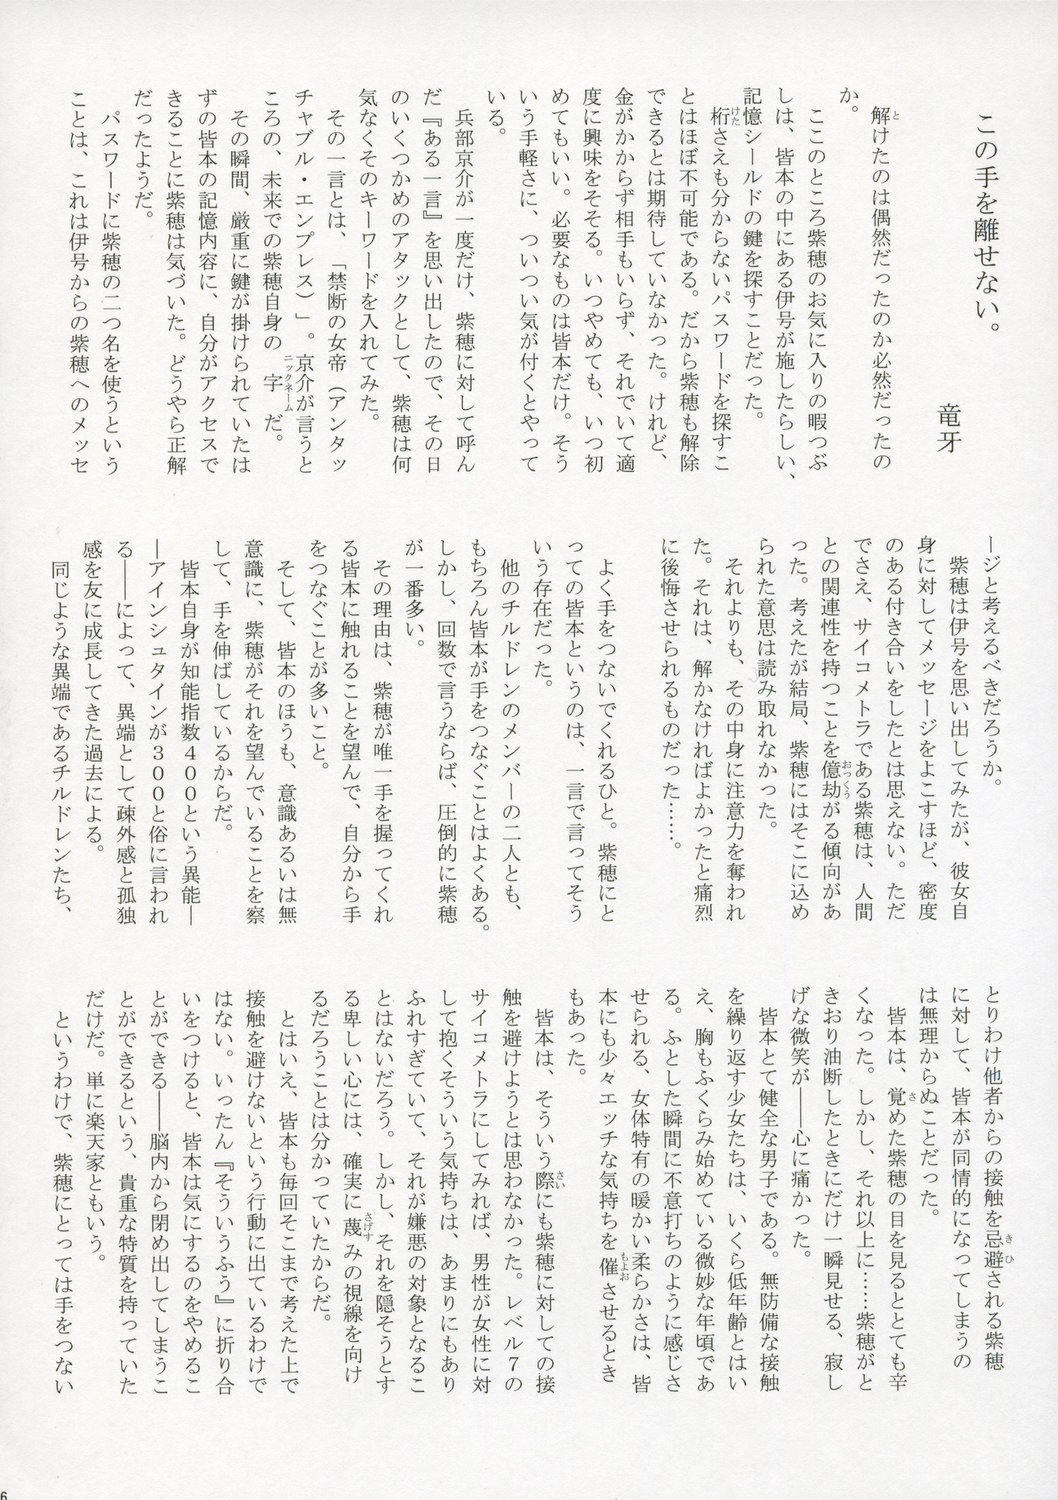 この手を離せない。
竜牙
解けたのは偶然だったのか必然だったの
か。
ここのところ紫穂のお気に入りの暇つぶ
しは、皆本の中にある伊号が施したらしい、
記憶シールドの鍵を探すことだった。
桁さえも分からないパスワードを探すこ
とはほぼ不可能である。だから紫穂も解除
できるとは期待していなかった。けれど、
金がかからず相手もいらず、それでいて適
度に興味をそそる。いつやめても、いつ初
めてもいい。必要なものは皆本だけ。そう
いう手軽さに、ついつい気が付くとやって
いる。
兵部京介が一度だけ、紫穂に対して呼ん
だ『ある一言』を思い出したので、その日
のいくつかめのアタックとして、紫穂は何
気なくそのキーワードを入れてみた。
その一言とは、「禁断の女帝（アンタッ
チャブル・エンプレス）」。京介が言うと
ころの、未来での紫穂自身の字だ。
その瞬間、厳重に鍵が掛けられていたは
ずの皆本の記憶内容に、自分がアクセスで
きることに紫穂は気づいた。どうやら正解
だったようだ。
パスワードに紫穂の二つ名を使うという
ことは、これは伊号からの紫穂へのメッセ
ージと考えるべきだろうか。
紫穂は伊号を思い出してみたが、彼女自
身に対してメッセージをよこすほど、密度
のある付き合いをしたとは思えない。ただ
でさえ、サイコメトラである紫穂は、人間
との関連性を持つことを億劫がる傾向があ
った。考えたが結局、紫穂にはそこに込め
られた意思は読み取れなかった。
それよりも、その中身に注意力を奪われ
た。それは、解かなければよかったと痛烈
に後悔させられるものだった……。
よく手をつないでくれるひと。紫穂にと
っての皆本というのは、一言で言ってそう
いう存在だった。
他のチルドレンのメンバーの二人とも、
もちろん皆本が手をつなぐことはよくある。
しかし、回数で言うならば、圧倒的に紫穂
が一番多い。
その理由は、紫穂が唯一手を握ってくれ
る皆本に触れることを望んで、自分から手
をつなぐことが多いこと。
そして、皆本のほうも、意識あるいは無
意識に、紫穂がそれを望んでいることを察
して、手を伸ばしているからだ。
皆本自身が知能指数４００という異能―
―アインシュタインが３００と俗に言われ
る――によって、異端として疎外感と孤独
感を友に成長してきた過去による。
同じような異端であるチルドレンたち、
とりわけ他者からの接触を忌避される紫穂
に対して、皆本が同情的になってしまうの
は無理からぬことだった。
皆本は、覚めた紫穂の目を見るととても辛
くなった。しかし、それ以上に……紫穂がと
きおり油断したときにだけ一瞬見せる、寂し
げな微笑が――心に痛かった。
皆本とて健全な男子である。無防備な接触
を繰り返す少女たちは、いくら低年齢とはい
え、胸もふくらみ始めている微妙な年頃であ
る。ふとした瞬間に不意打ちのように感じさ
せられる、女体特有の暖かい柔らかさは、皆
本にも少々エッチな気持ちを催させるとき
もあった。
皆本は、そういう際にも紫穂に対しての接
触を避けようとは思わなかった。レベル７の
サイコメトラにしてみれば、男性が女性に対
して抱くそういう気持ちは、あまりにもあり
ふれすぎていて、それが嫌悪の対象となるこ
とはないだろう。しかし、それを隠そうとす
る卑しい心には、確実に蔑みの視線を向け
るだろうことは分かっていたからだ。
とはいえ、皆本も毎回そこまで考えた上で
接触を避けないという行動に出ているわけで
はない。いったん『そういうふう』に折り合
いをつけると、皆本は気にするのをやめるこ
とができる――脳内から閉め出してしまうこ
とができるという、貴重な特質を持っていた
だけだ。単に楽天家ともいう。
というわけで、紫穂にとっては手をつない
6